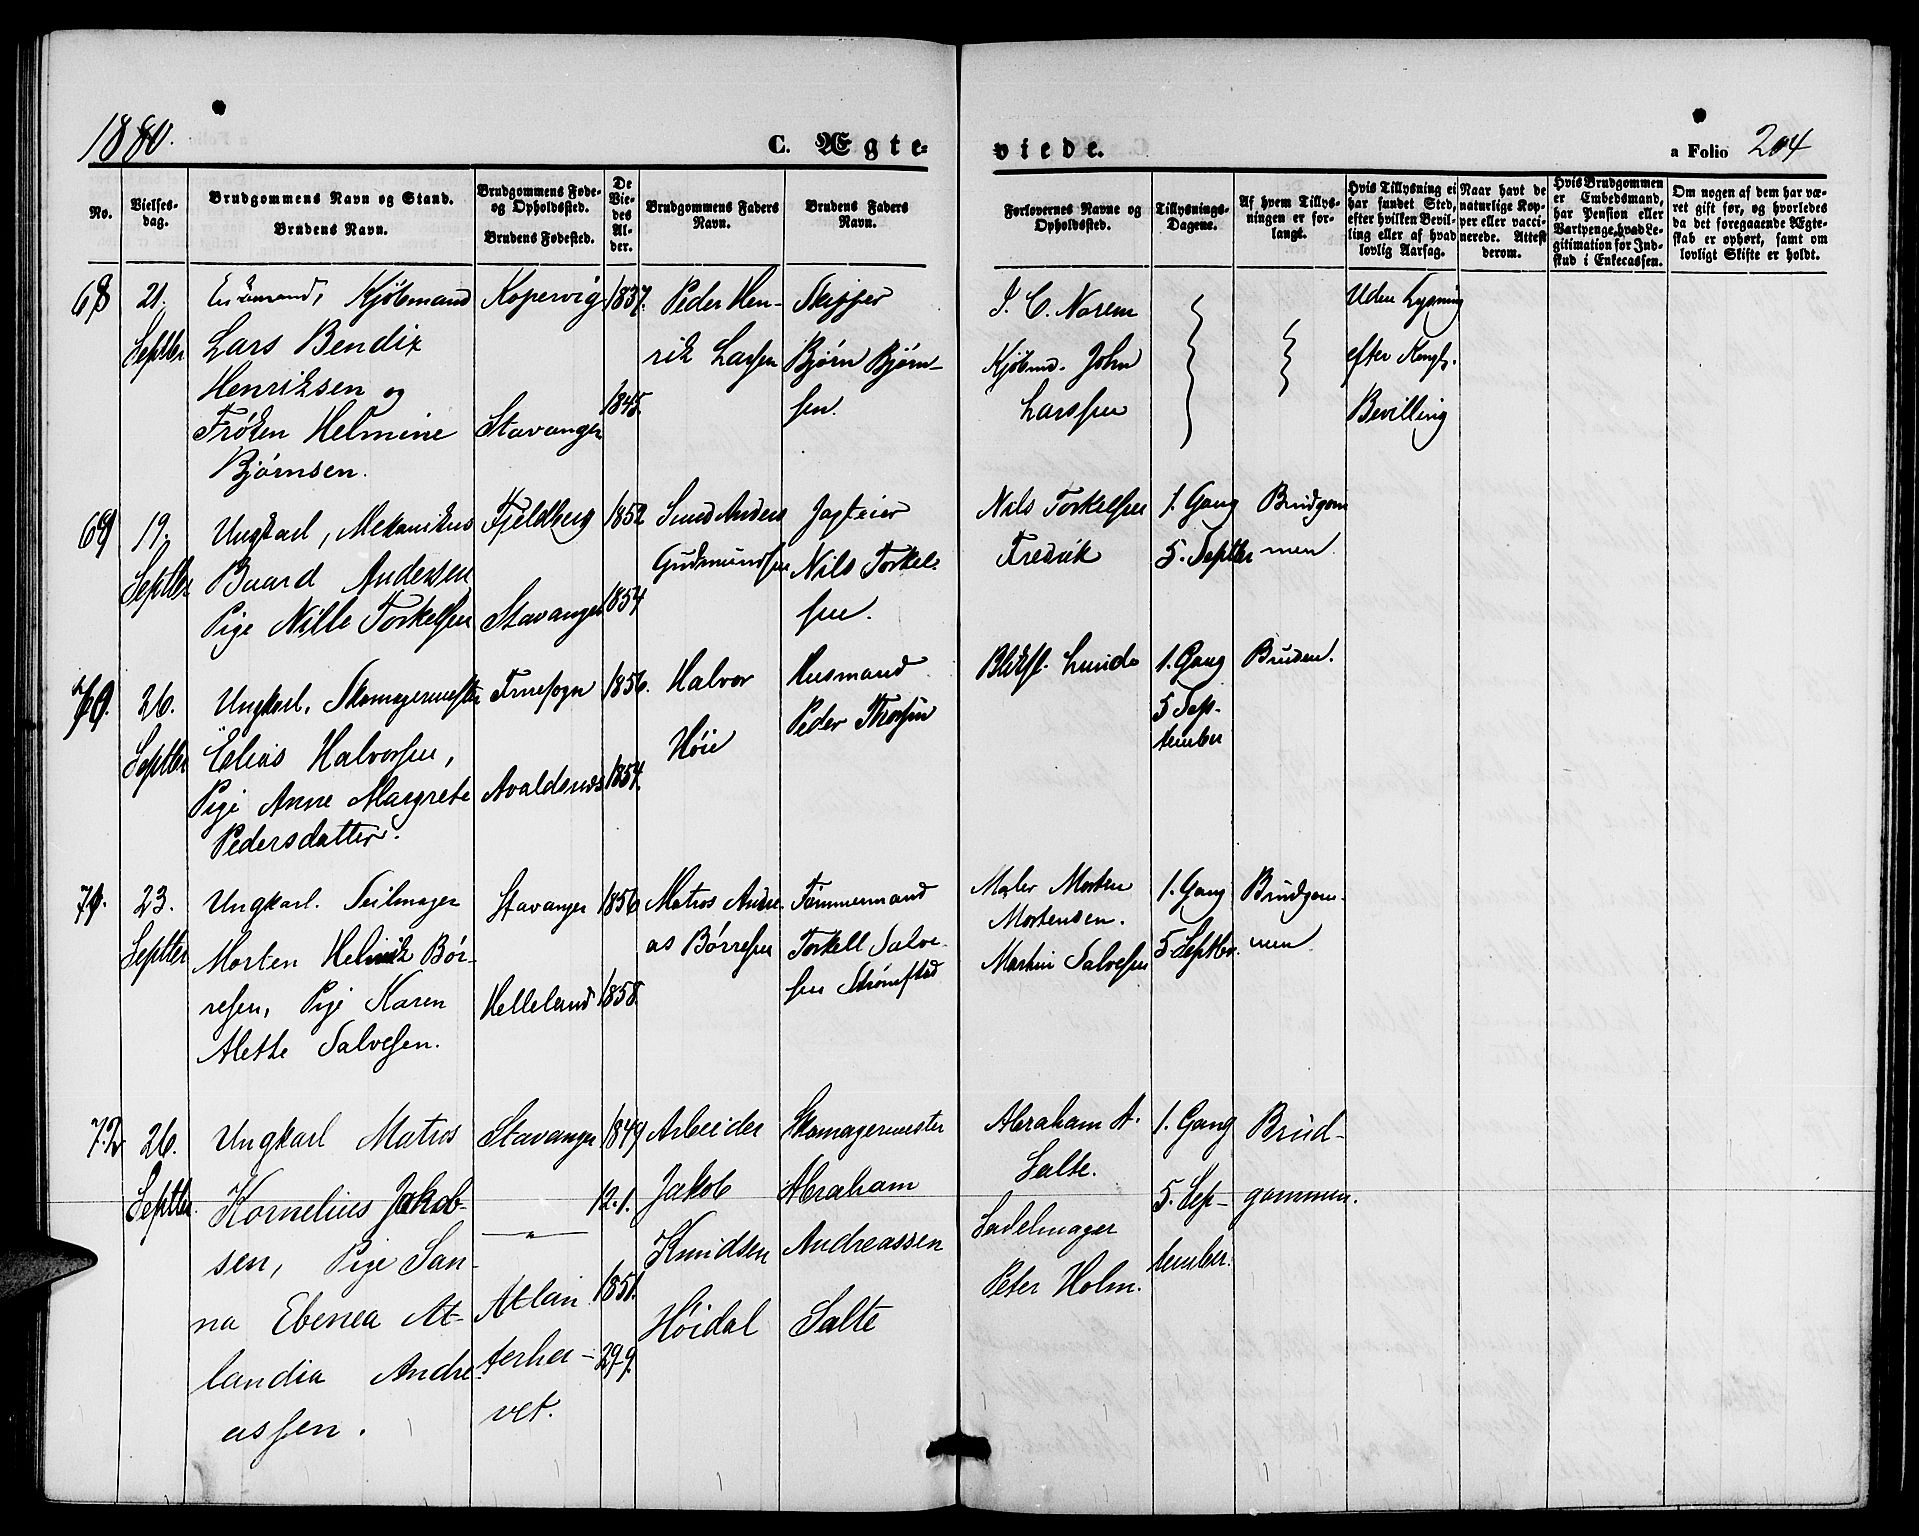 1880.
C. Ægte-
viede.
a Folio 204
No.
Vielses-
dag.
Brudgommens Navn og Stand.
Brudens Navn.
Brudgommens Føde-
og Opholdssted.
Brudens Fødested.
De
Vie-
des
Al-
der.
Brudgommens Faders
Navn.
Brudens Faders
Navn.
Forlovernes Navne og
Opholdssted.
Tillysnings-
Dagene.
Af hvem Tillys-
ningen er for-
langt.
Hvis Tillysning ei
har fundet Sted,
efter hvilken Bevil-
ling eller af hvad
lovlig Aarsag.
Naar havt de
naturlige Kop-
per eller vacci-
nerede. Attest
derom.
Hvis Brudgommen
er Embedsmand,
har Pension eller
Vartpenge, hvad Le-
gitimation for Ind-
skud i Enkecassen.
Om nogen af dem har væ-
ret gift før, og hvorledes
da det foregaaende Ægte-
skab er ophørt, samt om
lovligt Skifte er holdt.
68
21.
Septbr
Enkemand, Kjøbmand
Lars Bendix
Henriksen og
Frøken Helmine
Bjørnsen.
Kopervig
Stavanger
1837.
1845.
Peder Hen-
rik Larsen
Skipper
Bjørn Bjørn-
sen.
I. C. Norem
Kjøbmd. John
Larssen
Uden Lysning
efter Kongl.
Bevilling
69
19.
Septbr
Ungkarl, Mekanikus
Baard Andersen
Pige Nille Torkelsen
Fjeldberg
Stavanger
1852
1854
Smed Anders
Gudmundsen
Jagteier
Nils Torkel-
sen.
Nils Torkelsen
Fredrik
1. Gang
5. Septbr
Brudgom
men.
70.
26.
Septbr
Ungkarl, Skomagermester
Elias Halvorsen,
Pige Anne Margrete
Pedersdatter.
Finesogn
Avaldsnes
1856.
1854.
Halvor
Höie
Husmand
Peder Thorsen
Bliksl. Lunde
1. Gang
5 Sep-
tember
Bruden.
71.
23.
Septbr
Ungkarl. Seilmager
Morten Helmik Bör-
resen, Pige Karen
Alette Salvesen.
Stavanger
Helleland
1856
1858.
Matros Andre-
as Börresen
Tømmermand
Torkell Salve-
sen Strömstad
Maler Morten
Mortensen.
Martin Salvesen
1. Gang
5 Septbr.
Brudgom-
men
72
26.
Septbr.
Ungkarl Matros
Kornelius Jakob-
sen, Pige San-
na Ebenea At-
landia Andre-
assen.
Stavanger
— " —
Atlan
terha-
vet.
1849
12.1.
1851.
29-9.
Arbeider
Jakob
Knudsen
Höidal
Skomagermester
Abraham
Andreassen
Salte
Abraham A.
Salte.
Sadelmager
Peter Holm.
1. Gang
5. Sep-
tember.
Brud-
gommen.